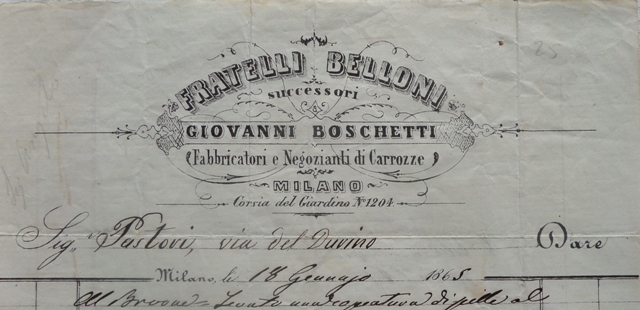 25
FRATELLI BELLONI
successori
A
GIOVANNI BOSCHETTI
Fabbricatori e Negozianti di Carrozze
MILANO
Corsia del Giardino N.º 1204
Sig.ri Pastori, via del Durino Dare
Milano, le 18 Gennajo 1865
Al Broone = Levato una copertura di pelle al